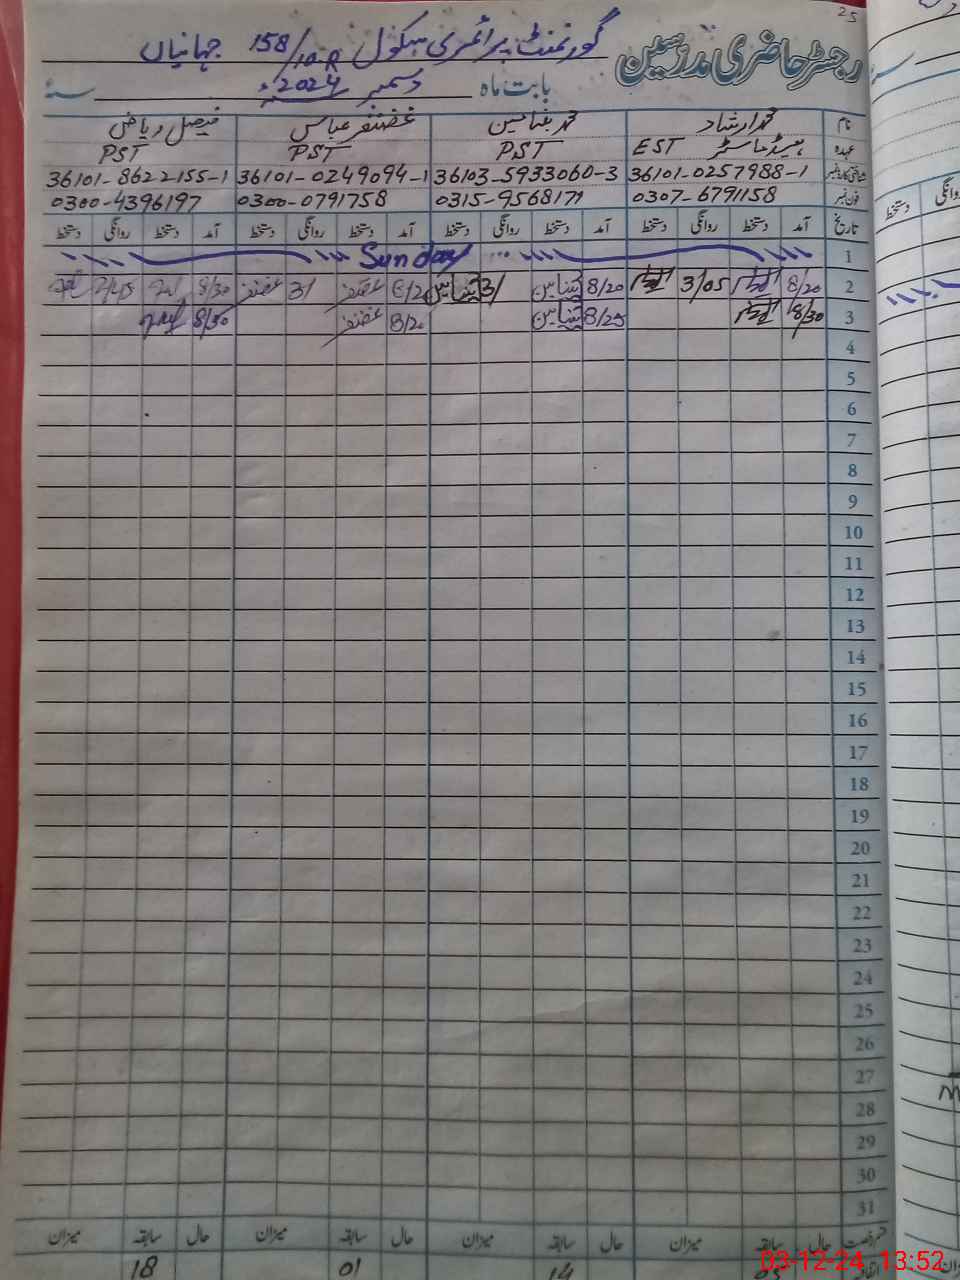 25
رجسٹر حاضری مدرسین گورنمنٹ پرائمری سکول 158/10-R جہانیاں
بابت ماہ دسمبر 2024 سنہ
نام محمد ارشاد محمد بنیامین غضنفر عباس فیصل ریاض
عہدہ ہیڈ ماسٹر EST PST PST PST
شناختی کارڈ نمبر 36101-0257988-1 36103-5933060-3 36101-0249094-1 36101-8622155-1
فون نمبر 0307-6791158 0315-9568171 0300-0791758 0300-4396197
تاریخ آمد دستخط روانگی دستخط آمد دستخط روانگی دستخط آمد دستخط روانگی دستخط آمد دستخط روانگی دستخط
1 Sunday
2 8/20 3/05 8/20 بنیامین 3/ بنیامین 8/20 غضنفر 3/ غضنفر 8/30
3 8/30 8/25 بنیامین 8/20 غضنفر 8/30
4
5
6
7
8
9
10
11
12
13
14
15
16
17
18
19
20
21
22
23
24
25
26
27
28
29
30
31
قسم رخصت حال سابقہ میزان حال سابقہ میزان حال سابقہ میزان حال سابقہ میزان
14 01 18
03-12-24 13:52
روانگی دستخط